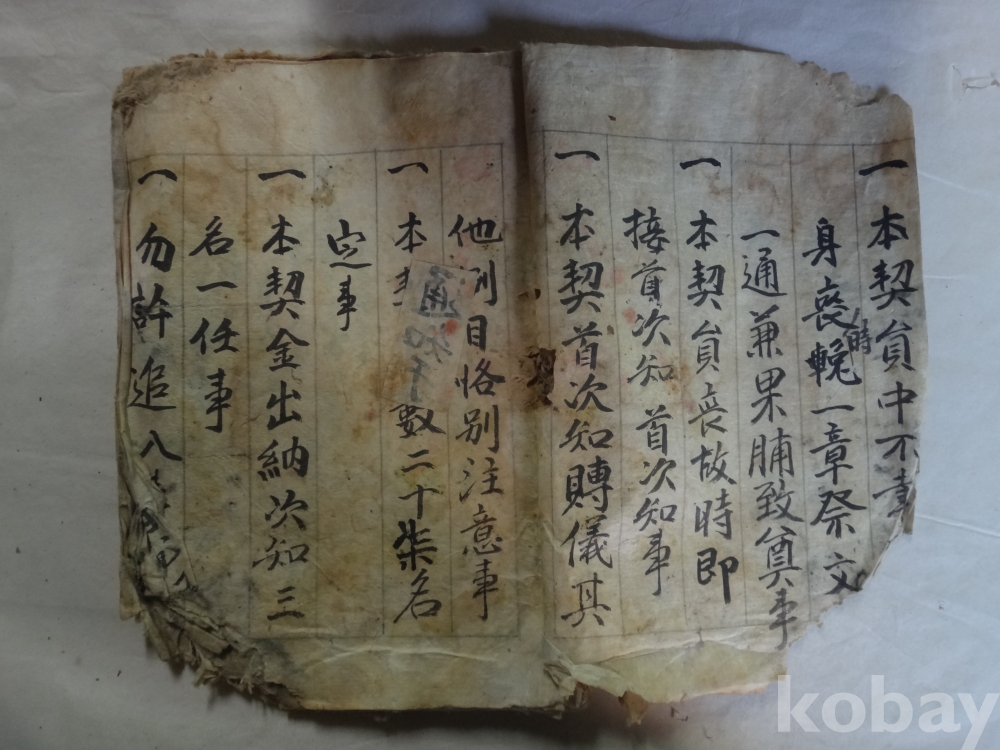 一 本契員中不幸
身喪時輓一章祭文
一通兼果脯致奠事
一 本契員喪故時即
接首次知首次知事
一 本契首次知賻儀其
他凋目恪別注意事
一 本契 數二十柒名
定事
一 本契金出納次知三
名一任事
一 勿許追入
通知
kobay